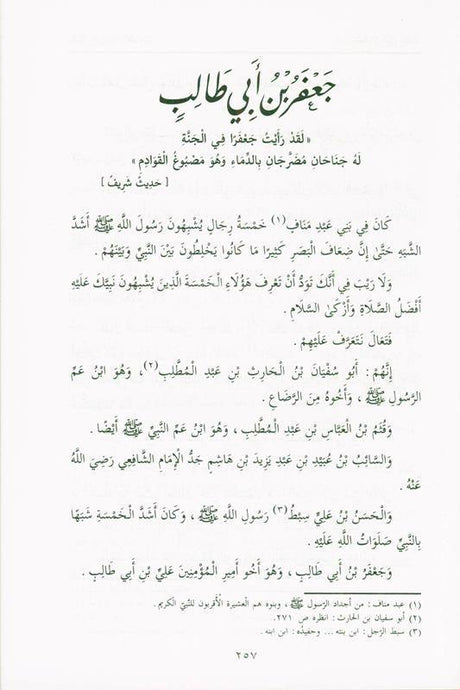 جَعْفَرُ بْنُ أَبِي طَالِبٍ
« لَقَدْ رَأَيْتُ جَعْفَرًا فِي الْجَنَّةِ
لَهُ جَنَاحَانِ مُضَرَّجَانِ بِالدِّمَاءِ وَهُوَ مَصْبُوغُ الْقَوَادِمِ »
[ حَدِيثٌ شَرِيفٌ ]
كَانَ فِي بَنِي عَبْدِ مَنَافٍ (١) خَمْسَةُ رِجَالٍ يُشْبِهُونَ رَسُولَ اللَّهِ ﷺ أَشَدَّ
الشَّبَهِ حَتَّى إِنَّ ضِعَافَ الْبَصَرِ كَثِيرًا مَا كَانُوا يَخْلِطُونَ بَيْنَ النَّبِيِّ وَبَيْنَهُمْ .
وَلَا رَيْبَ فِي أَنَّكَ تَوَدُّ أَنْ تَعْرِفَ هَؤُلَاءِ الْخَمْسَةَ الَّذِينَ يُشْبِهُونَ نَبِيَّكَ عَلَيْهِ
أَفْضَلُ الصَّلَاةِ وَأَزْكَى السَّلَامِ .
فَتَعَالَ نَتَعَرَّفْ عَلَيْهِمْ .
إِنَّهُمْ : أَبُو سُفْيَانَ بْنُ الْحَارِثِ بْنِ عَبْدِ الْمُطَّلِبِ (٢)، وَهُوَ ابْنُ عَمِّ
الرَّسُولِ ﷺ ، وَأَخُوهُ مِنَ الرَّضَاعِ .
وَقُثَمُ بْنُ الْعَبَّاسِ بْنِ عَبْدِ الْمُطَّلِبِ ، وَهُوَ ابْنُ عَمِّ النَّبِيِّ ﷺ أَيْضًا .
وَالسَّائِبُ بْنُ عُبَيْدِ بْنِ عَبْدِ يَزِيدَ بْنِ هَاشِمٍ جَدُّ الْإِمَامِ الشَّافِعِي رَضِيَ اللَّهُ
عَنْهُ .
وَالْحَسَنُ بْنُ عَلِيٍّ سِبْطُ (٣) رَسُولِ اللَّهِ ﷺ ، وَكَانَ أَشَدَّ الْخَمْسَةِ شَبَهًا
بِالنَّبِيِّ صَلَوَاتُ اللَّهِ عَلَيْهِ .
وَجَعْفَرُ بْنُ أَبِي طَالِبٍ ، وَهُوَ أَخُو أَمِيرِ الْمُؤْمِنِينَ عَلِيِّ بْنِ أَبِي طَالِبٍ .
(١) عبد مناف : من أجداد الرّسول ﷺ ، وبنوه هم العشيرة الأقربون للنَّبيّ الكريم .
(٢) أبو سفيان بن الحارث : انظره ص ٢٧١ .
(٣) سبط الرّجل : ابن بنته ... وحفيدُه : ابن ابنه .
٢٥٧